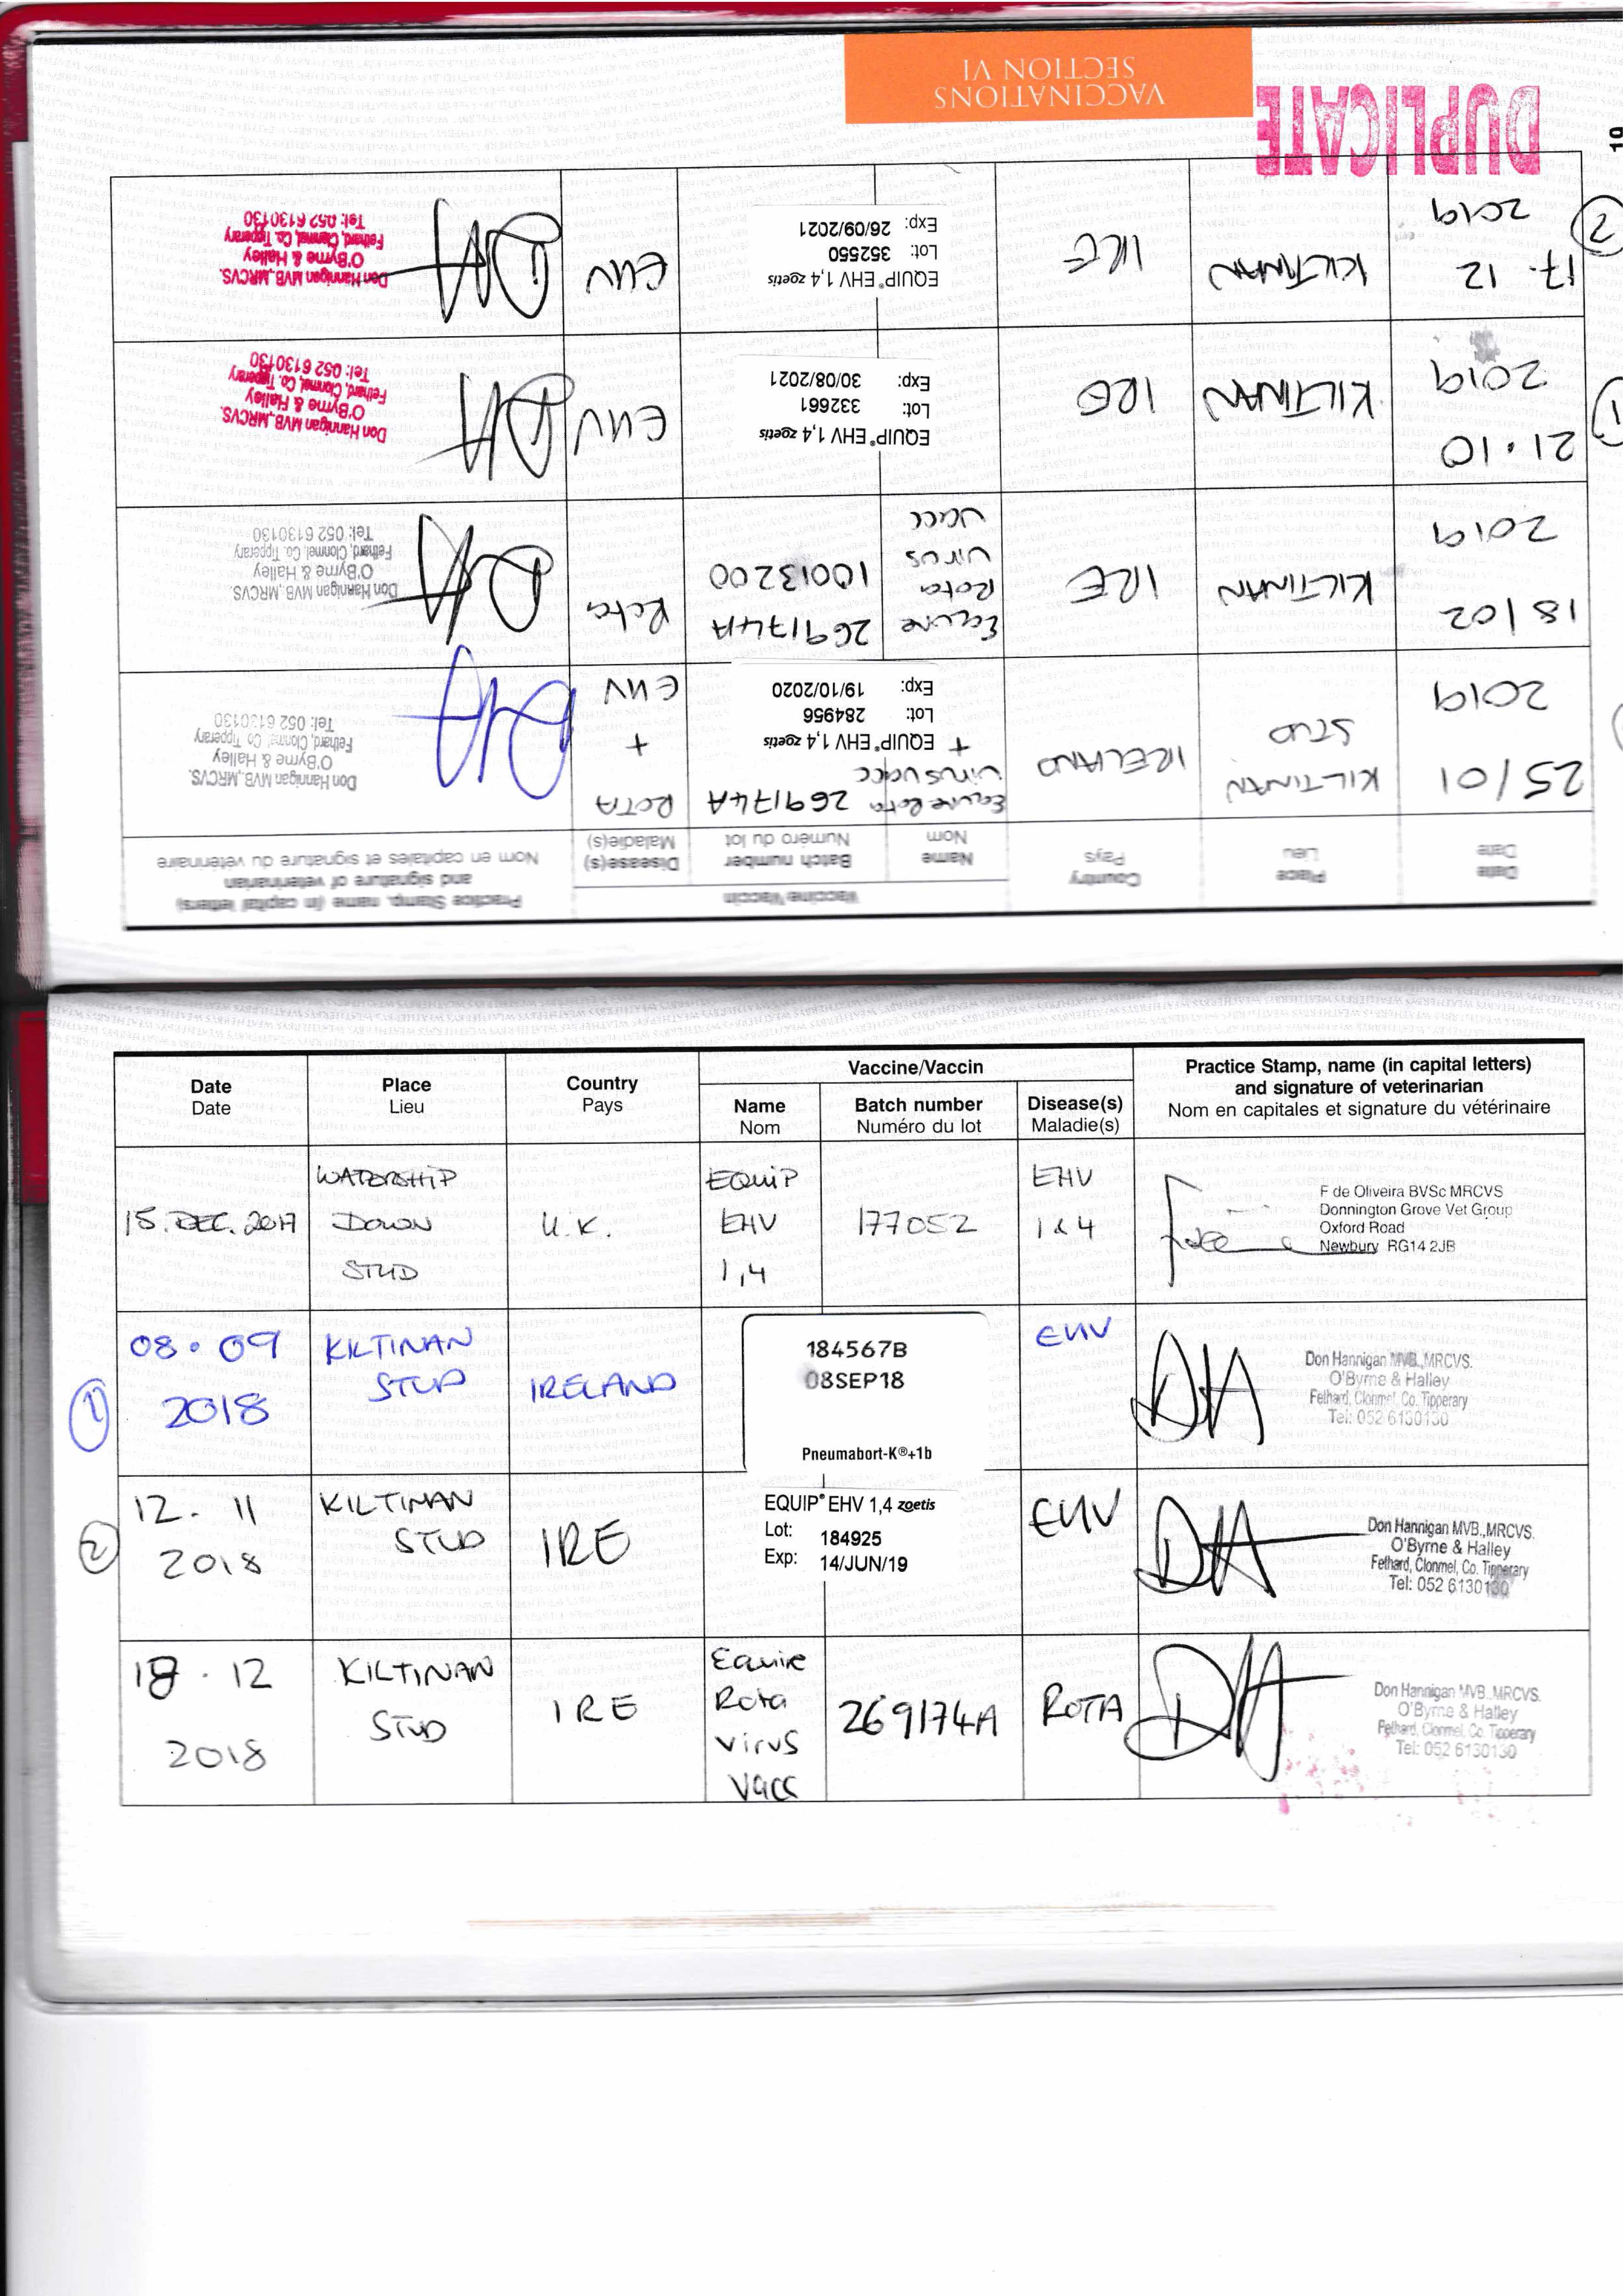 VACCINATIONS
SECTION VI
DUPLICATE
19
Practice Stamp, name (in capital letters)
and signature of veterinarian
Nom en capitales et signature du vétérinaire
Vaccine/Vaccin
Date
Date
Place
Lieu
Country
Pays
Name
Nom
Batch number
Numéro du lot
Disease(s)
Maladie(s)
25/01
2019
KILTINAN
STUD
IRELAND
Equine Rota
virus vacc
269174A
+ EQUIP® EHV 1,4 zoetis
Lot: 284956
Exp: 19/10/2020
ROTA
+
EHV
Don Hannigan MVB.,MRCVS.
O'Byrne & Halley
Fethard, Clonmel, Co. Tipperary
Tel: 052 6130130
18/02
2019
KILTINAN
IRE
Equine
Rota
virus
vacc
269174A
10013200
Rota
Don Hannigan MVB.,MRCVS.
O'Byrne & Halley
Fethard, Clonmel, Co. Tipperary
Tel: 052 6130130
1
21.10
2019
KILTINAN
IRE
EQUIP® EHV 1,4 zoetis
Lot: 332661
Exp: 30/08/2021
EHV
Don Hannigan MVB.,MRCVS.
O'Byrne & Halley
Fethard, Clonmel, Co. Tipperary
Tel: 052 6130130
2
17.12
2019
KILTINAN
IRE
EQUIP® EHV 1,4 zoetis
Lot: 352550
Exp: 26/09/2021
EHV
Don Hannigan MVB.,MRCVS.
O'Byrne & Halley
Fethard, Clonmel, Co. Tipperary
Tel: 052 6130130
Date
Date
Place
Lieu
Country
Pays
Vaccine/Vaccin
Name
Nom
Batch number
Numéro du lot
Disease(s)
Maladie(s)
Practice Stamp, name (in capital letters)
and signature of veterinarian
Nom en capitales et signature du vétérinaire
15.DEC.2017
WATERSHIP
DOWN
STUD
U.K.
EQUIP
EHV
1,4
177052
EHV
1 & 4
F de Oliveira BVSc MRCVS
Donnington Grove Vet Group
Oxford Road
Newbury RG14 2JB
1
08.09
2018
KILTINAN
STUD
IRELAND
184567B
08SEP18
Pneumabort-K®+1b
EHV
Don Hannigan MVB.,MRCVS.
O'Byrne & Halley
Fethard, Clonmel, Co. Tipperary
Tel: 052 6130130
2
12.11
2018
KILTINAN
STUD
IRE
EQUIP® EHV 1,4 zoetis
Lot: 184925
Exp: 14/JUN/19
EHV
Don Hannigan MVB.,MRCVS.
O'Byrne & Halley
Fethard, Clonmel, Co. Tipperary
Tel: 052 6130130
18.12
2018
KILTINAN
STUD
IRE
Equine
Rota
virus
Vacc
269174A
ROTA
Don Hannigan MVB.,MRCVS.
O'Byrne & Halley
Fethard, Clonmel, Co. Tipperary
Tel: 052 6130130